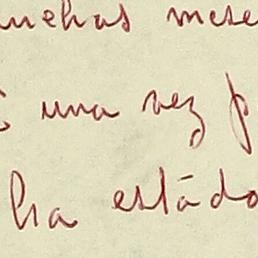 muchas mese
una vez p
ha estádo